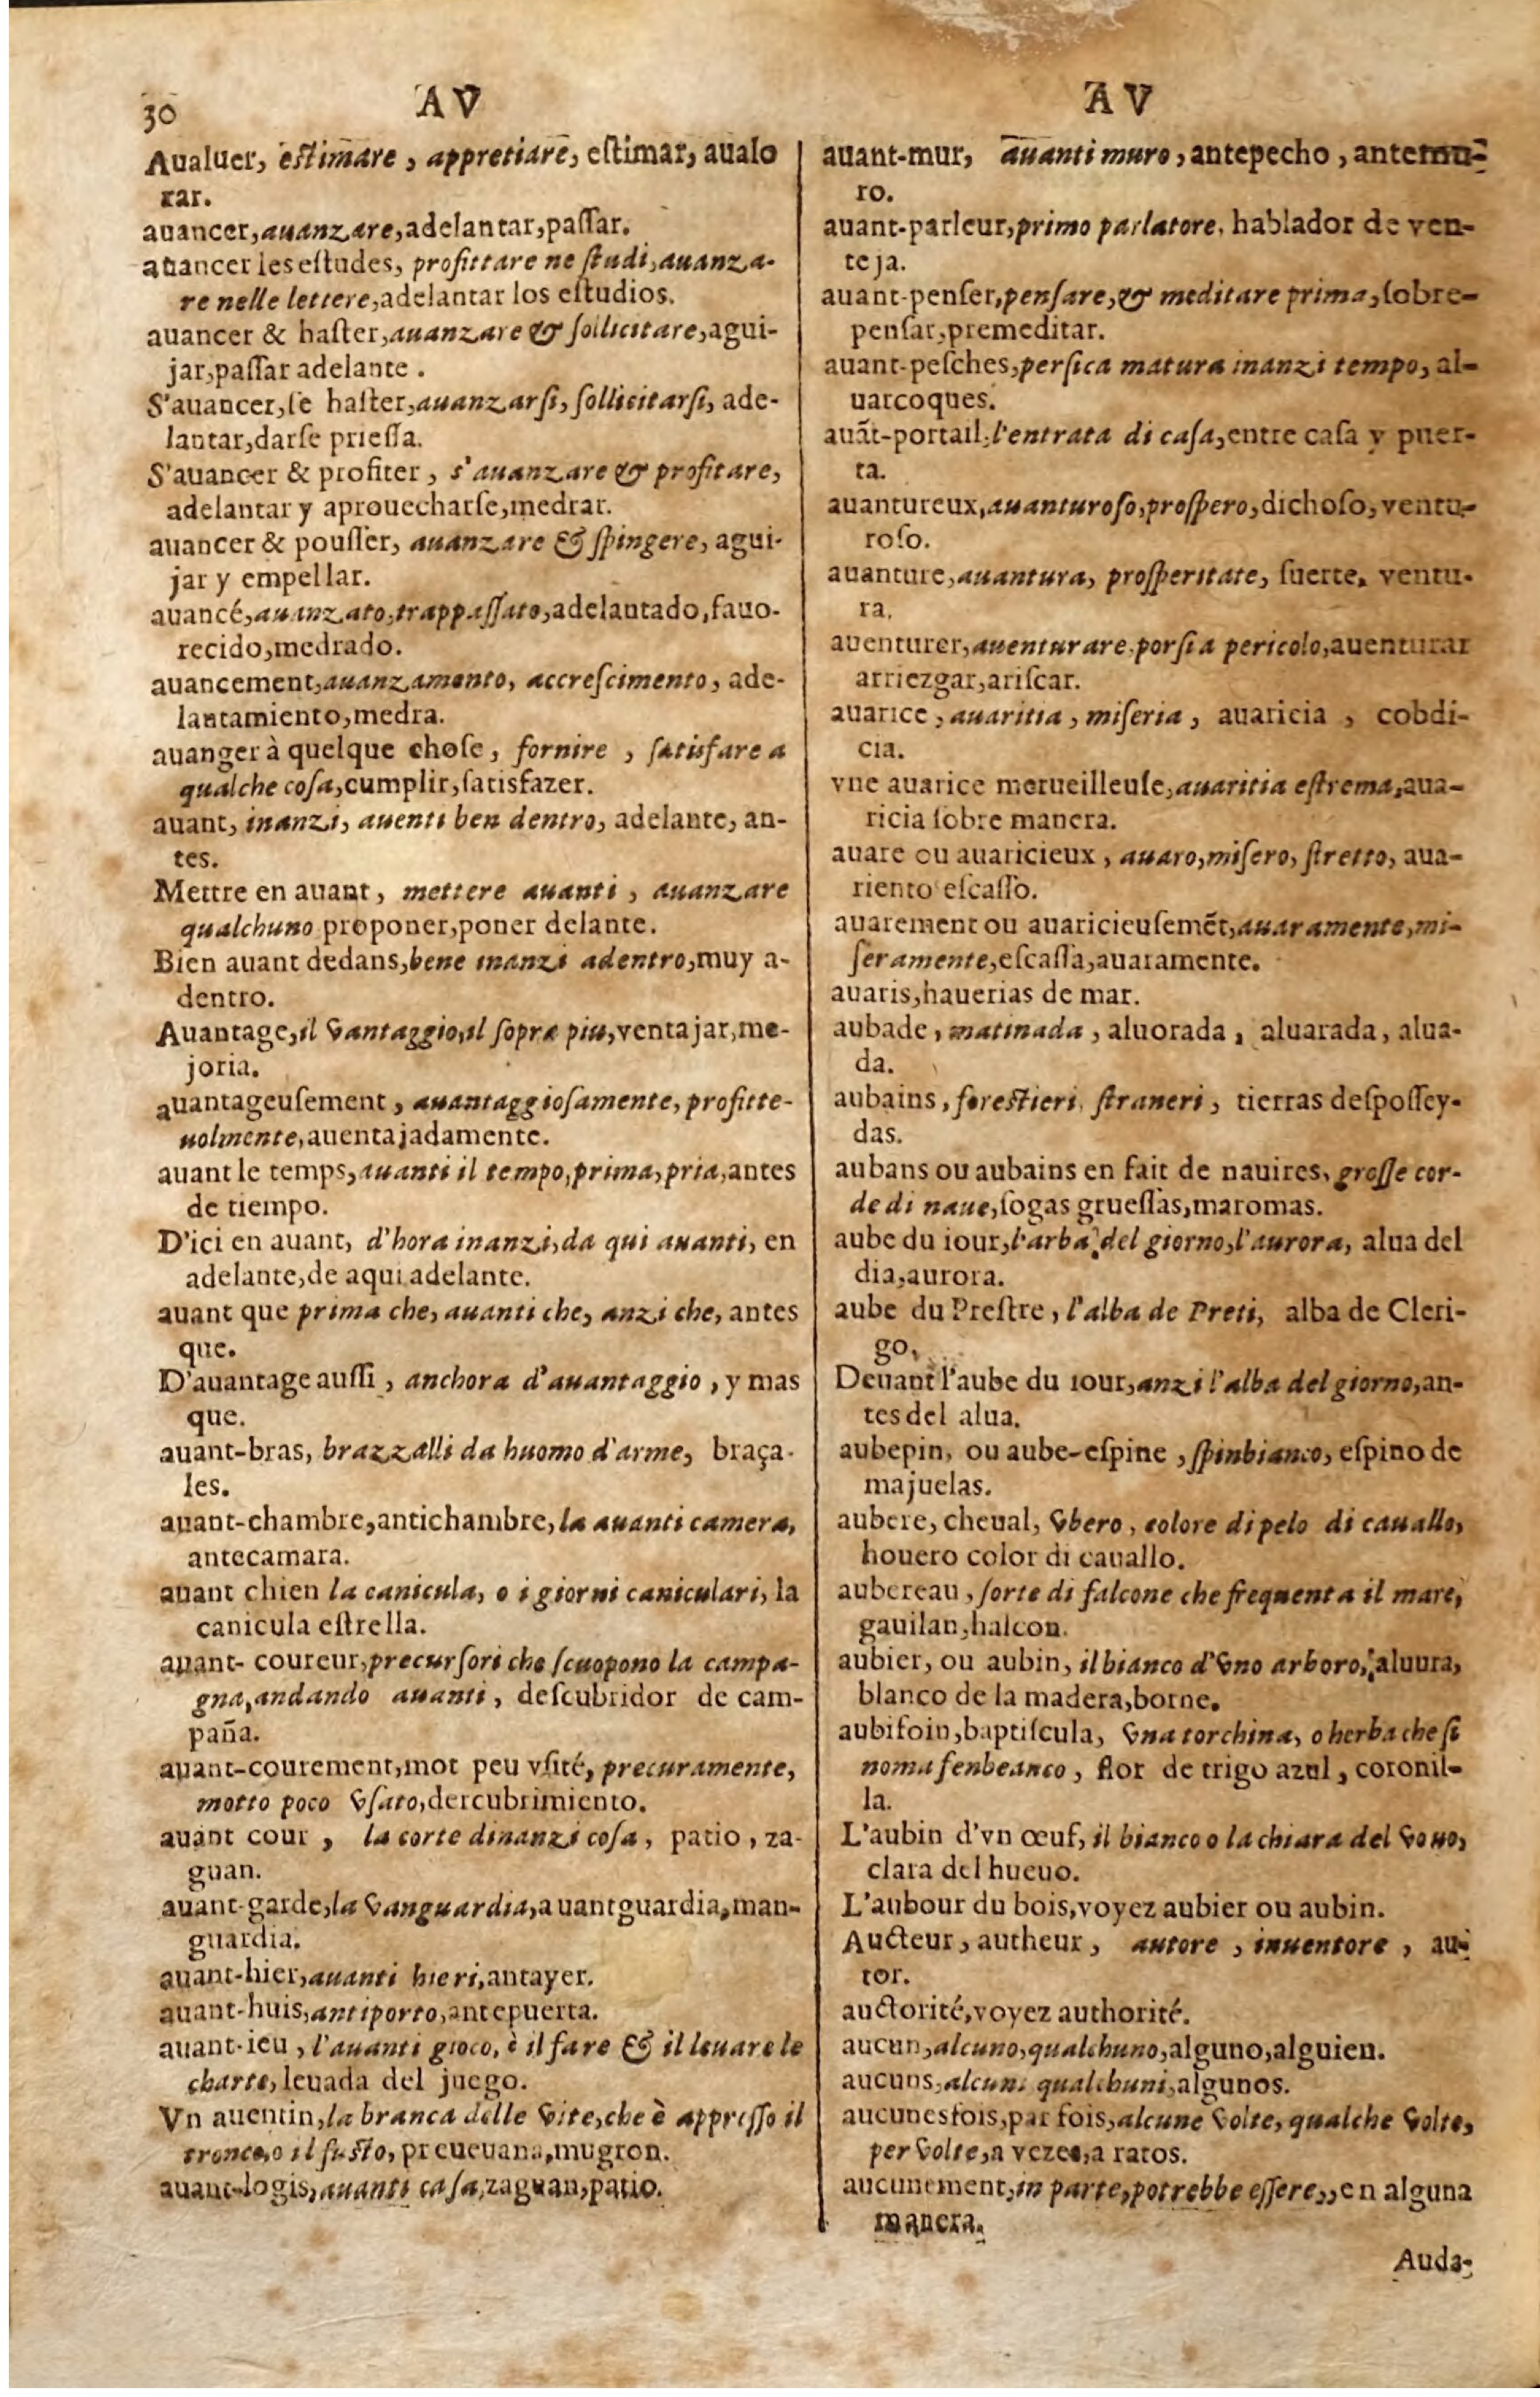 30
AV
Aualuer, estimare, appretiare, estimar, aualo
rar.
auancer, auanzare, adelantar, paſſar.
auancer les eſtudes, profittare ne ſtudi, auanza-
re nelle lettere, adelantar los eſtudios.
auancer & haſter, auanzare & ſollicitare, agui-
jar, paſſar adelante.
S'auancer, ſe haſter, auanzarſi, ſollicitarſi, ade-
lantar, darſe prieſſa.
S'auancer & profiter, s'auanzare & profitare,
adelantar y aprouecharſe, medrar.
auancer & pouſſer, auanzare & ſpingere, agui-
jar y empellar.
auancé, auanzato, trappaſſato, adelantado, fauo-
recido, medrado.
auancement, auanzamento, accreſcimento, ade-
lantamiento, medra.
auanger à quelque choſe, fornire, ſatisfare a
qualche coſa, cumplir, ſatisfazer.
auant, inanzi, auenti ben dentro, adelante, an-
tes.
Mettre en auant, mettere auanti, auanzare
qualchuno proponer, poner delante.
Bien auant dedans, bene inanzi adentro, muy a-
dentro.
Auantage, il vantaggio, il ſopra piu, ventajar, me-
joria.
auantageuſement, auantaggioſamente, profitte-
uolmente, auentajadamente.
auant le temps, auanti il tempo, prima, pria, antes
de tiempo.
D'ici en auant, d'hora inanzi, da qui auanti, en
adelante, de aqui adelante.
auant que prima che, auanti che, anzi che, antes
que.
D'auantage auſſi, anchora d'auantaggio, y mas
que.
auant-bras, brazzalli da huomo d'arme, braça-
les.
auant-chambre, antichambre, la auanti camera,
antecamara.
auant chien la canicula, o i giorni caniculari, la
canicula eſtrella.
auant- coureur, precurſori che ſcuopono la campa-
gna, andando auanti, deſcubridor de cam-
paña.
auant-courement, mot peu vſité, precuramente,
motto poco vſato, dercubrimiento.
auant cour, la corte dinanzi coſa, patio, za-
guan.
auant-garde, la vanguardia, auantguardia, man-
guardia.
auant-hier, auanti hieri, antayer.
auant-huis, antiporto, antepuerta.
auant-ieu, l'auanti gioco, è il fare & il leuare le
charte, leuada del juego.
Vn auentin, la branca delle vite, che è appreſſo il
tronco, o il fuſto, preueuana, mugron.
auant-logis, auanti caſa, zaguan, patio.
AV
auant-mur, auanti muro, antepecho, antemu-
ro.
auant-parleur, primo parlatore, hablador de ven-
teja.
auant-penſer, penſare, & meditare prima, ſobre-
penſar, premeditar.
auant-peſches, perſica matura inanzi tempo, al-
uarcoques.
auãt-portail, l'entrata di caſa, entre caſa y puer-
ta.
auantureux, auanturoſo, proſpero, dichoſo, ventu-
roſo.
auanture, auantura, proſperitate, ſuerte, ventu-
ra.
auenturer, auenturare, porſi a pericolo, auenturar
arriezgar, ariſcar.
auarice, auaritia, miſeria, auaricia, cobdi-
cia.
vne auarice merueilleuſe, auaritia eſtrema, aua-
ricia ſobre manera.
auare ou auaricieux, auaro, miſero, ſtretto, aua-
riento eſcaſſo.
auarement ou auaricieuſemẽt, auaramente, mi-
ſeramente, eſcaſſa, auaramente.
auaris, hauerias de mar.
aubade, matinada, aluorada, aluarada, alua-
da.
aubains, foreſtieri, ſtraneri, tierras deſpoſſey-
das.
aubans ou aubains en fait de nauires, groſſe cor-
de di naue, ſogas grueſſas, maromas.
aube du iour, l'arba del giorno, l'aurora, alua del
dia, aurora.
aube du Preſtre, l'alba de Preti, alba de Cleri-
go.
Deuant l'aube du iour, anzi l'alba del giorno, an-
tes del alua.
aubepin, ou aube-eſpine, ſpinbianco, eſpino de
majuelas.
aubere, cheual, vbero, colore di pelo di cauallo,
houero color di cauallo.
aubereau, ſorte di falcone che frequenta il mare,
gauilan, halcon.
aubier, ou aubin, il bianco d'vno arboro, aluura,
blanco de la madera, borne.
aubifoin, baptiſcula, vna torchina, o herba che ſi
noma fenbeanco, flor de trigo azul, coronil-
la.
L'aubin d'vn œuf, il bianco o la chiara del vouo,
clara del hueuo.
L'aubour du bois, voyez aubier ou aubin.
Aucteur, autheur, autore, inuentore, au-
tor.
auctorité, voyez authorité.
aucun, alcuno, qualchuno, alguno, alguien.
aucuns, alcuni qualchuni, algunos.
aucunesfois, par fois, alcune volte, qualche volte,
per volte, a vezes, a ratos.
aucunement, in parte, potrebbe eſſere,, en alguna
manera.
Auda-